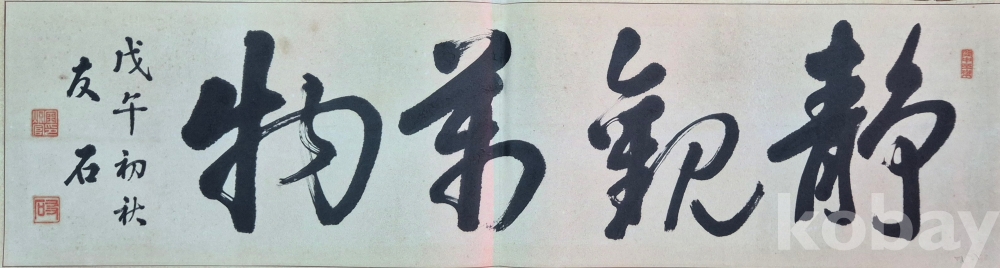 靜觀萬物
戊午初秋
友石
kobay